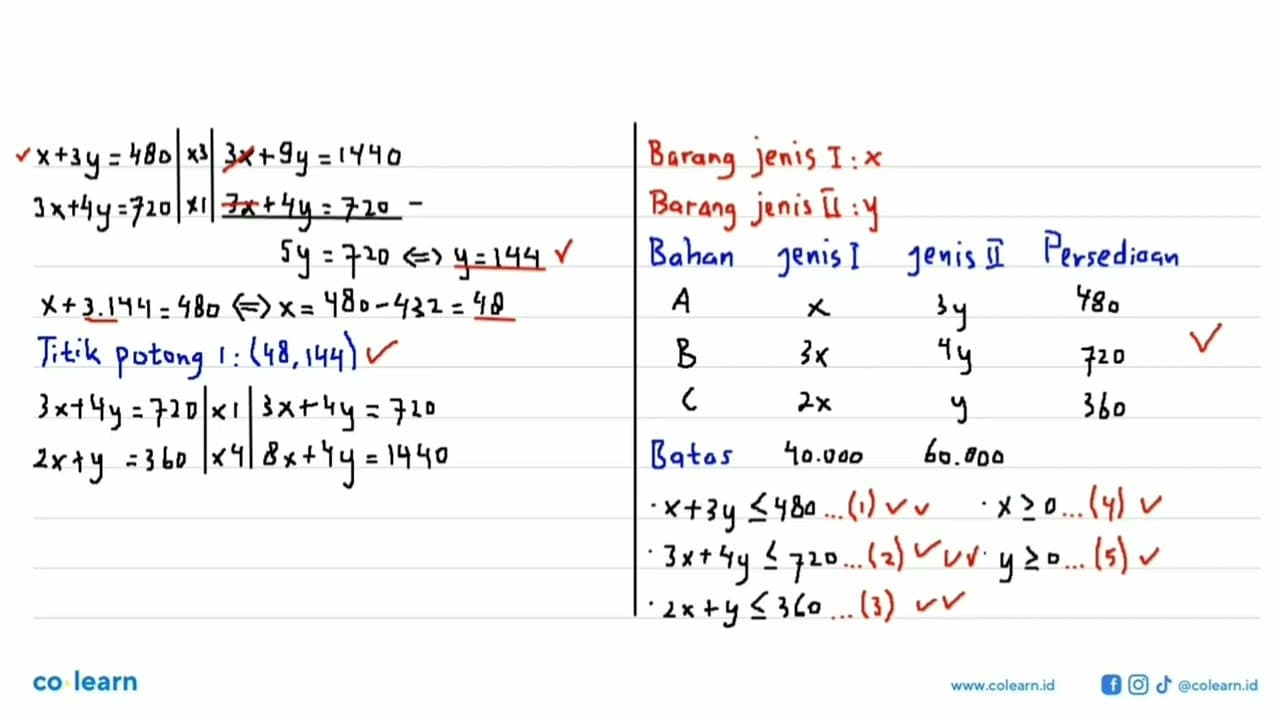 ✓ x+3y=480 | x3 | 3x+9y=1440
3x+4y=720 | x1 | 3x+4y=720 −
5y=720 ⟺ y=144 ✓
x+3.144=480 ⟺ x=480−432=48
Titik potong 1: (48,144) ✓
3x+4y=720 | x1 | 3x+4y=720
2x+y =360 | x4 | 8x+4y=1440
Barang jenis I : x
Barang jenis II : y
Bahan jenis I jenis II Persediaan
A x 3y 480
B 3x 4y 720 ✓
C 2x y 360
Batas 40.000 60.000
· x+3y ≤ 480 ...(1) ✓✓ · x ≥ 0 ...(4) ✓
· 3x+4y ≤ 720 ...(2) ✓✓✓ · y ≥ 0 ...(5) ✓
· 2x+y ≤ 360 ...(3) ✓✓
co learn
www.colearn.id @colearn.id